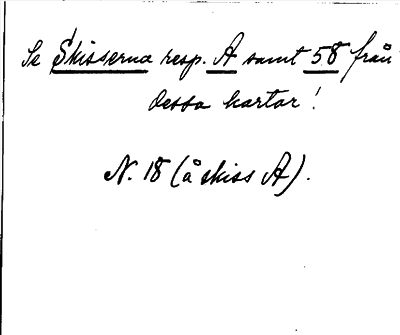 Se Skisserna resp. A samt 58 från
dessa kartor!
N. 18 (å skiss A).